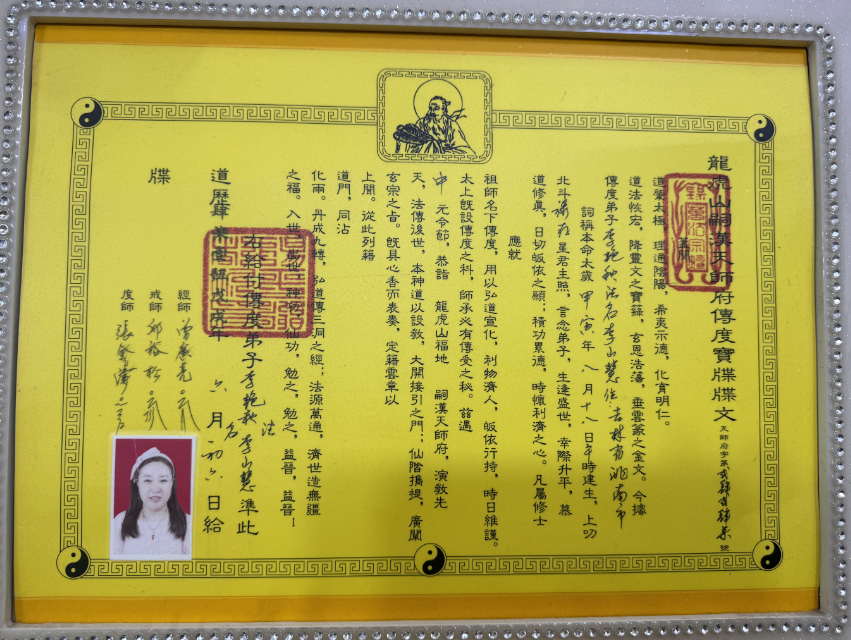 龍虎山嗣漢天師府傳度寶牒牒文
天師府字第
號
道肇太極,理通陰陽,希夷示德,化育明仁。
道法恢宏,降靈文之寶籙,玄恩浩蕩,垂雲篆之金文。今據
傳度弟子李艷秋法名李山慧住吉林省洮南市
詞稱本命太歲甲寅年八月十八日午時建生,上叨
北斗祿存星君主照,言念弟子,生逢盛世,幸際升平,慕
道修真,日切皈依之願;積功累德,時懷利濟之心。凡屬修士
應就
祖師名下傳度,用以弘道宣化,利物濟人,皈依行持,時日維護。
太上既設傳度之科,師承必有傳受之秘。茲遇
中元令節,恭詣龍虎山福地嗣漢天師府,演教先
天,法傳後世,本神道以設教,大開接引之門;仙階攜提,廣闡
玄宗之旨。既具心香而表奏,定籍雲章以
上聞。從此列籍
道門,同沾
化雨。丹成九轉,弘道傳三洞之經;法源萬通,濟世造無疆
之福。入世出世,神功仙功,勉之,勉之,益晉,益晉!
右給付傳度弟子李艷秋法名李山慧準此
道歷肆戊戌年六月初六日給
經師曾廣亮
戒師邱裕松
度師張金濤
牒